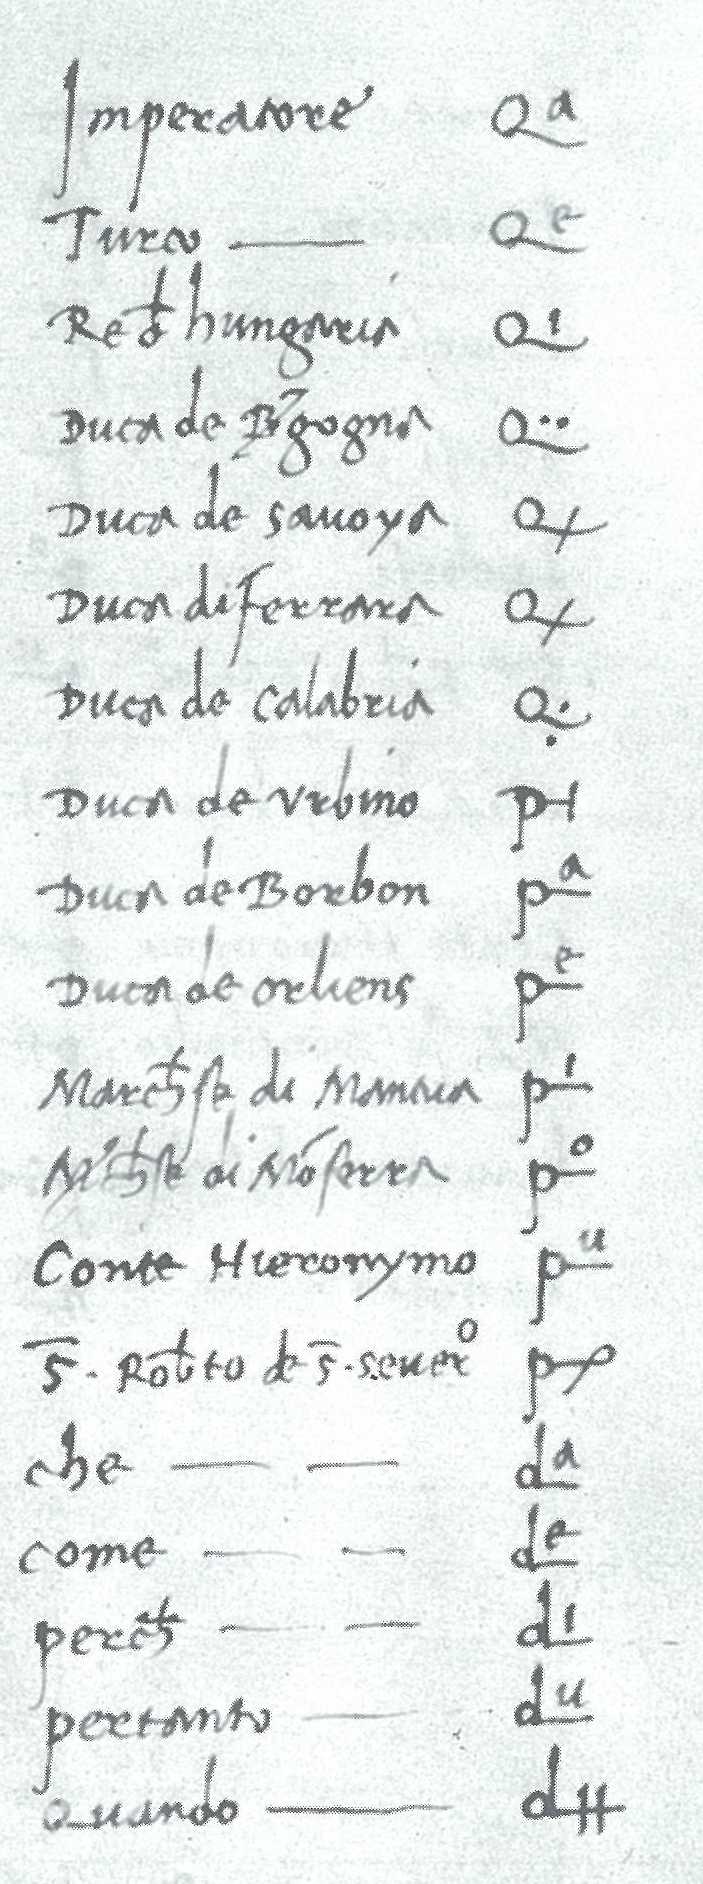 Imperatore Qa
Turco Qe
Re d hungaria Qi
Duca de Bgogna Q..
Duca de sauoya Q
Duca di ferrara Q
Duca de calabria Q
Duca de Vrbino p
Duca de Borbon pa
Duca de orliens pe
March se di Mantua pi
di Mōferra po
Conte Hieronymo pu
S. Robto de S. seuero p
che da
come de
perch di
pertanto du
quando d